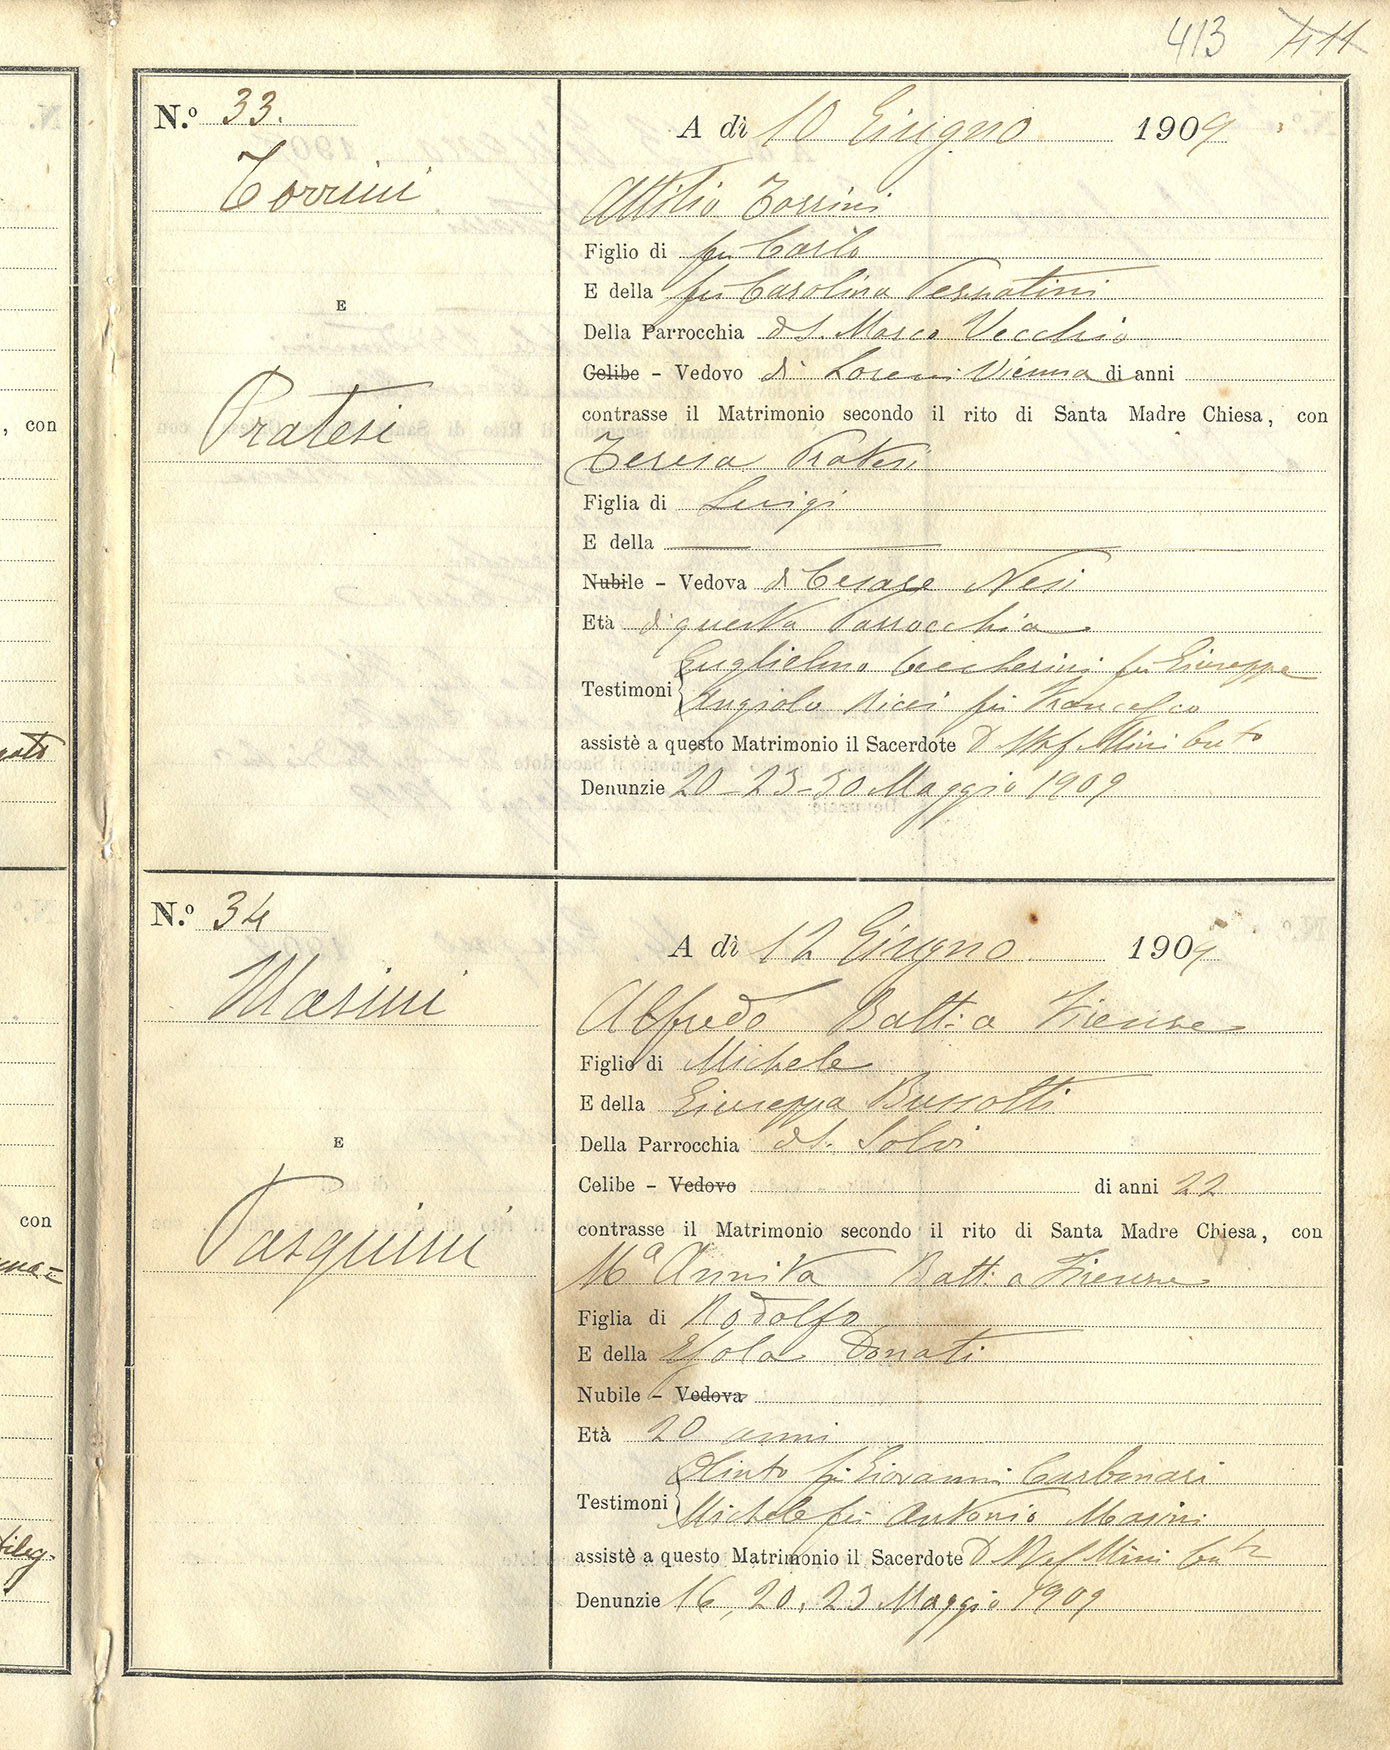 413 411
N.º 33.
Torrini
E
Pratesi
A dì 10 Giugno 1909
Attilio Torrini
Figlio di fu Carlo
E della fu Carolina
Della Parrocchia di S. Marco Vecchio
Celibe - Vedovo di Vienna di anni
contrasse il Matrimonio secondo il rito di Santa Madre Chiesa, con
Teresa Pratesi
Figlia di Luigi
E della
Nubile - Vedova di Cesare Nesi
Età di questa Parrocchia
Guglielmo Ceccherini fu Giuseppe
Testimoni
Angiolo Ricci fu Francesco
assistè a questo Matrimonio il Sacerdote D Raf Mini Cu to
Denunzie 20-23-30 Maggio 1909
N.º 34
Masini
E
Pasquini
A dì 12 Giugno 1909
Alfredo Batt.o a Firenze
Figlio di Michele
E della Giuseppa Bussotti
Della Parrocchia di S. Salvi
Celibe - Vedovo di anni 22
contrasse il Matrimonio secondo il rito di Santa Madre Chiesa, con
Mª Annita Batt. a Firenze
Figlia di Rodolfo
E della Donati
Nubile - Vedova
Età 20 anni
Olinto fu Giovanni Carbonari
Testimoni
Michele fu Antonio Masini
assistè a questo Matrimonio il Sacerdote D Raf Mini Cu to
Denunzie 16, 20, 23 Maggio 1909
, con
con